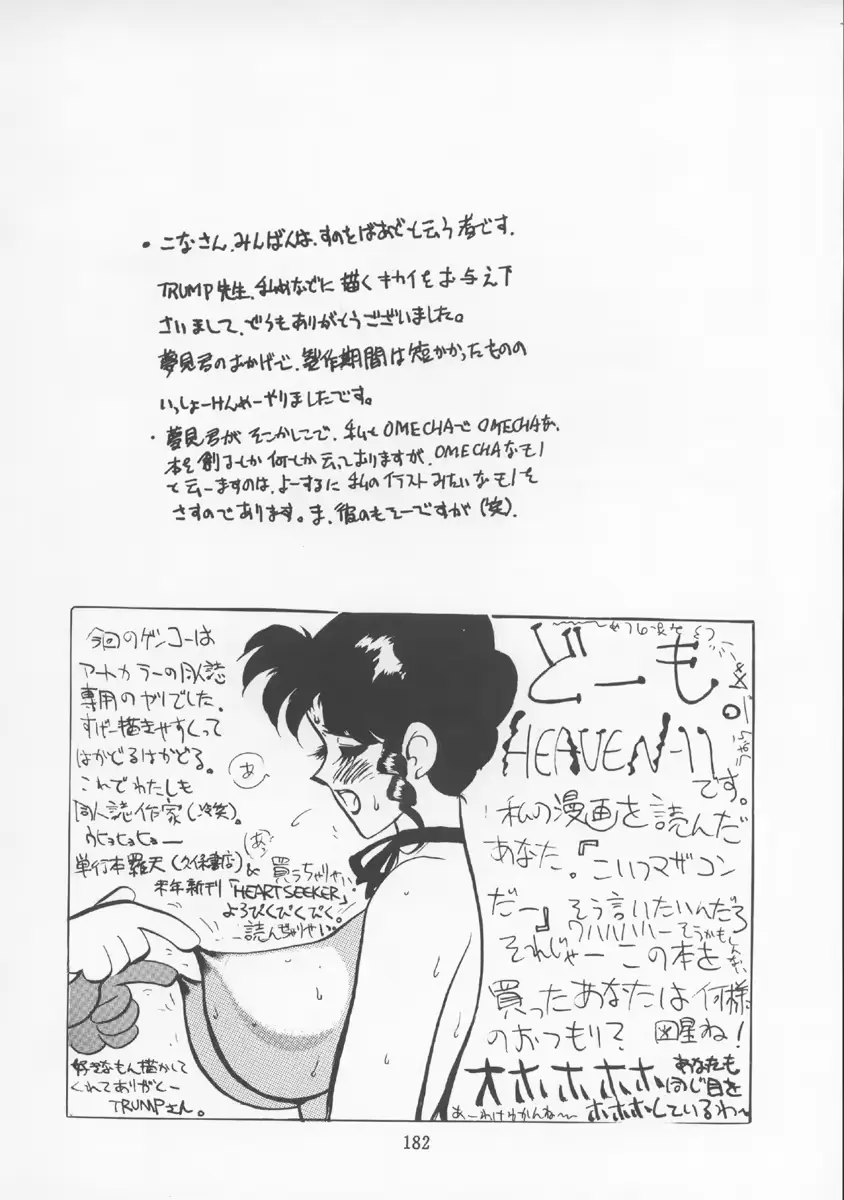 ・こなさん、みんばんは、すのをばあどと云う者です.
TRUMP先生、私めなどに描くキカイをお与え下
さいまして、でうもありがとうございました。
夢見君のおかげで、製作期間は短かかったものの
いっしょーけんめーやりましたです。
・夢見君がそこかしこで、私もOMECHAでOMECHAな、
本を創るとか何とか云っておりますが、OMECHAなモノ
と云ーますのは、よーするに私のイラストみたいなモノを
さすのであります。ま、彼のもそーですが(笑).
今回のゲンコーは
アートカラーの同人誌
専用のヤツでした.
すげー描きやすくって
はかどるはかどる。
これでわたしも
同人誌作家(冷笑).
ウヒョヒョヒョー
単行本羅天(久保書店)&
来年新刊「HEARTSEEKER」
買っちゃりせい
よろぴくぴくぴく。
読んちゃりせい。
あ
あっ
どーも。
HEAVEN-11
です。
私の漫画を読んだ
あなた。『こいつマザコン
だー』そう言いたいんだろ
ワハハハハー そうかもしんない
それじゃー この本を
買ったあなたは何様
のおつもり? 図星ね!
オホホホホ
あなたも
同じ目を
しているわ〜
ホホホ
あーわけわかんな〜
好きなもん描かして
くれてありがとー
TRUMPさん。
182